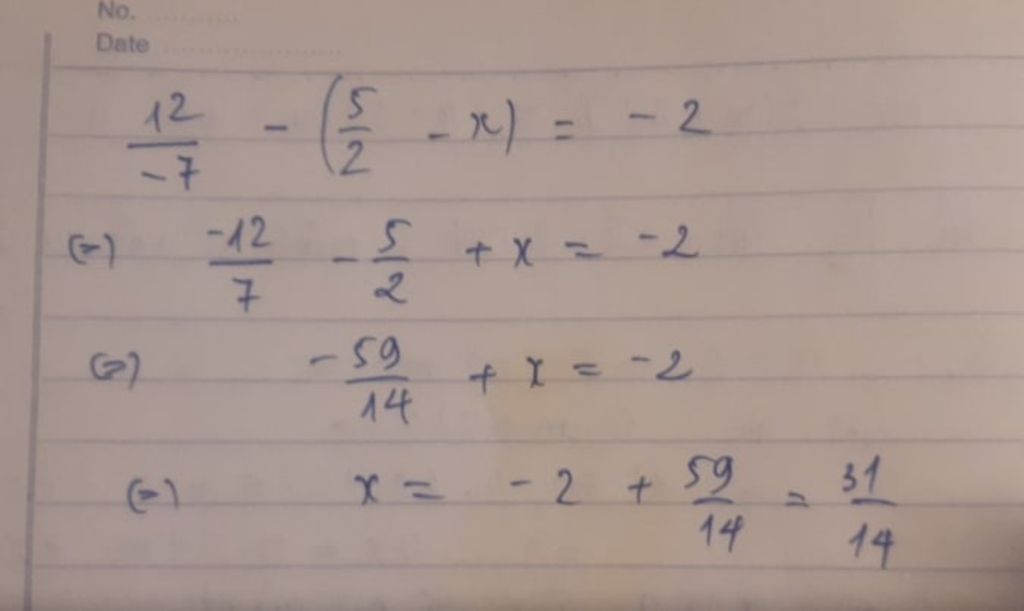 No.
Date
12/-7 - (5/2 - x) = -2
(=) -12/7 - 5/2 + x = -2
(=) -59/14 + x = -2
(=) x = -2 + 59/14 = 31/14